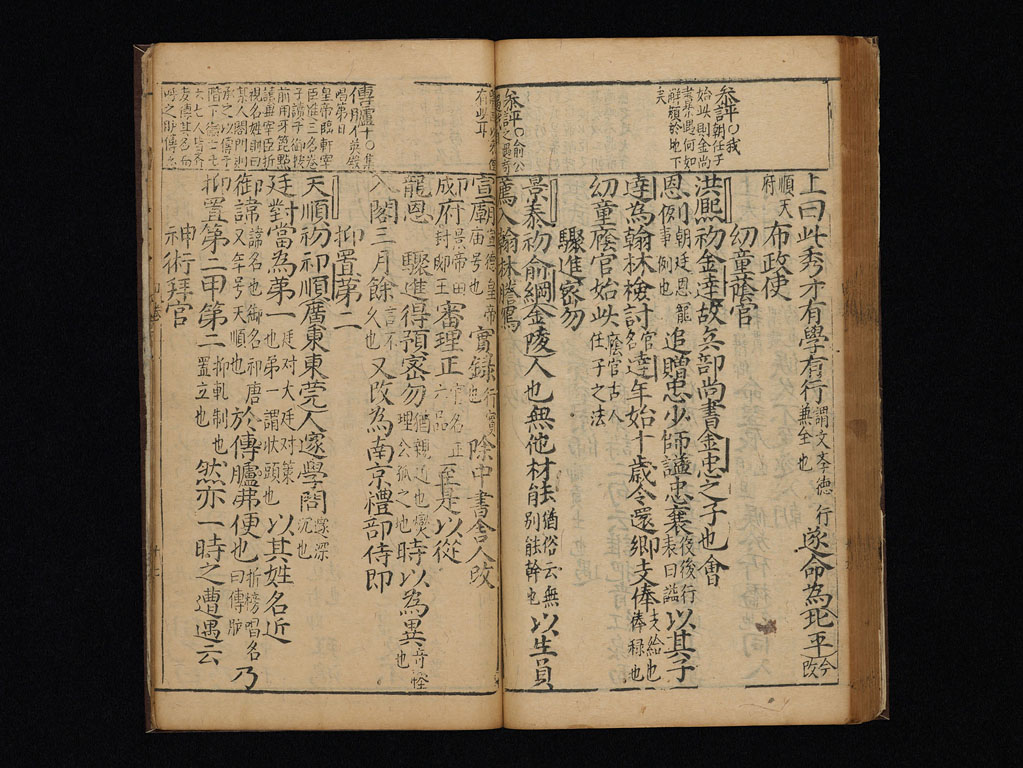 參評○我
朝任子
始此則金尚
書榮遇何如
解頤於地下
矣
上曰此秀才有學有行謂文李德行兼全也遂命為北平今改
順天府布政使
幼童蔭官
洪熙初金達故兵部尚書金忠之子也會
恩例朝廷恩寵假事例也追贈忠少師謚忠襄後後行表曰謚以其子
達為翰林檢討官名達年始十歲令還鄉支俸支給也俸祿也
幼童廕官始此廕官古人任子之法
驟進密勿
景泰初俞綱金陵人也無他材能猶俗云無別能幹也以生員
薦入翰林謄寫
參評○俞公
有此耳
宣廟宣德皇帝廟号也實錄行實也除中書舍人改
成府景帝由封郕王審理正官名正六品至是以從
龍恩驟進得預密勿猶親近也爕理公孤之地時以為異奇怪也
入閣三月餘言不久也又改為南京禮部侍郎
抑置第二
天順初祁順廣東東莞人邃學問邃深沉也
廷對當為第一廷对大廷对策也弟一謂狀頭也以其姓名近
御諱諱名也御名祁唐又年号天順也於傳臚弗便也曰傳臚折榜唱名乃
抑置第二甲第二抑軋制也置立也然亦一時之遭遇云
神術拜官
傳臚○集英殿
唱第日
皇帝臨軒宰
臣進三名卷
子讀于御按
前用牙篦點
讀與宰臣折
視名姓則曰
某人閤門則
承之以傳于
階下衛士
六七人皆齊
聲傳其名而
呼之謂傳臚